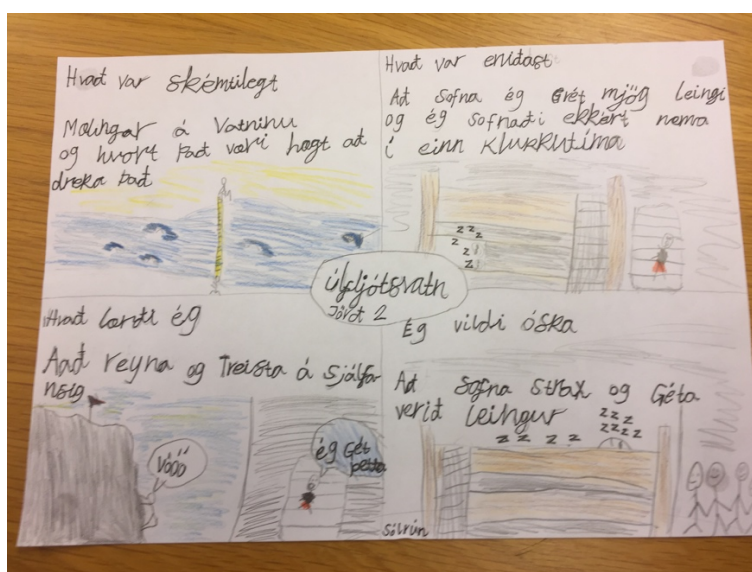 Hvað var skémtilegt
Mælingar á Vatninu
og hvort það væri hægt að
dreka það
Hvað var eriðast
Að sofna ég Grét mjög leingi
og ég sofnaði ekkért nema
í einn klukkutíma
z z z
z
z
úlfljótsvatn
Járót 2
Hvað lærði ég
Aað reyna og Treista á sjálfa
nsig
vóóó
ég Gét
þetta
Ég vildi óska
Að sofna strax og Géta
verið leingur
z z z
z z z z
z z z z
Sólrún